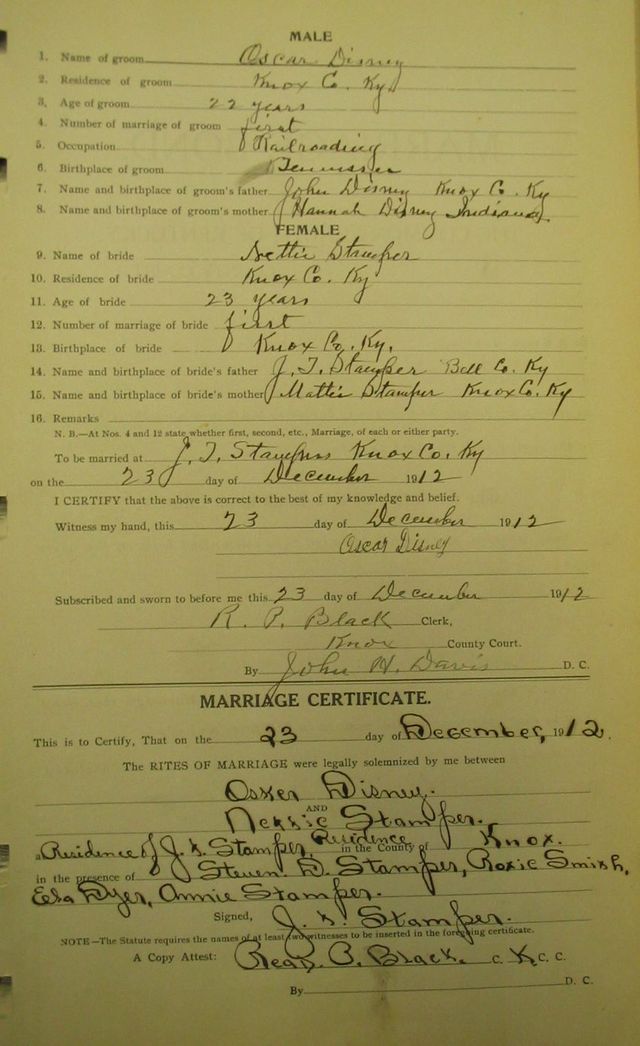 MALE
1. Name of groom Oscar Disney
2. Residence of groom Knox Co. Ky
3. Age of groom 22 years
4. Number of marriage of groom first
5. Occupation Railroading
6. Birthplace of groom Tennessee
7. Name and birthplace of groom's father John Disney Knox Co. Ky
8. Name and birthplace of groom's mother Hannah Disney Indiana
FEMALE
9. Name of bride Nettie Stamper
10. Residence of bride Knox Co. Ky
11. Age of bride 23 years
12. Number of marriage of bride first
13. Birthplace of bride Knox Co. Ky.
14. Name and birthplace of bride's father J. T. Stamper Bell Co. Ky
15. Name and birthplace of bride's mother Mattie Stamper Knox Co. Ky
16. Remarks
N. B.—At Nos. 4 and 12 state whether first, second, etc., Marriage, of each or either party.
To be married at J. T. Stampers Knox Co. Ky
on the 23 day of December 1912
I CERTIFY that the above is correct to the best of my knowledge and belief.
Witness my hand, this 23 day of December 1912
Oscar Disney
Subscribed and sworn to before me this 23 day of December 1912
R. P. Black Clerk,
Knox County Court.
By John H. Davis D. C.
MARRIAGE CERTIFICATE.
This is to Certify, That on the 23 day of December, 1912.
The RITES OF MARRIAGE were legally solemnized by me between
Osker Disney.
AND
Nettie Stamper.
a Residence of J. T. Stamper, Residence in the County of Knox.
in the presence of Steven D. Stamper, Roxie Smith,
Dyer, Annie Stamper.
Signed, J. T. Stamper.
NOTE—The Statute requires the names of at least two witnesses to be inserted in the foregoing certificate.
A Copy Attest: Read P. Black. C. K. C. C.
By D. C.